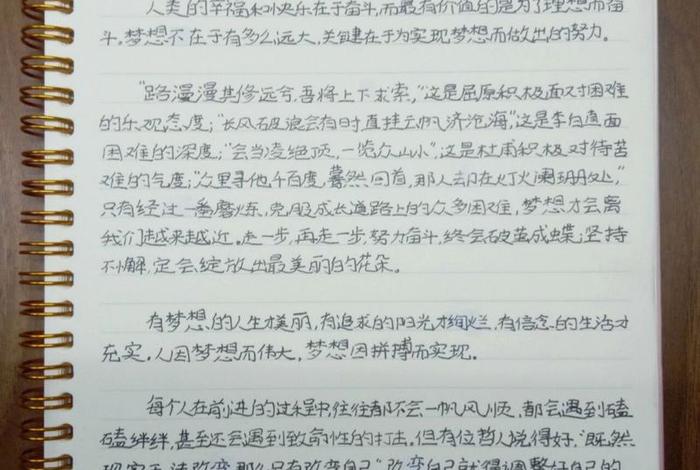 人类的幸福和快乐在于奋斗,而最有价值的是为了理想而奋
斗。梦想不在于有多么远大,关键在于为实现梦想而做出的努力。
“路漫漫其修远兮,吾将上下求索,”这是屈原积极面对困难
的乐观态度;“长风破浪会有时,直挂云帆济沧海,”这是李白直面
困难的深度;“会当凌绝顶,一览众山小”,这是杜甫积极对待苦
难的气度;“众里寻他千百度,蓦然回首,那人却在灯火阑珊处,”
只有经过一番磨炼,克服成长道路上的众多困难,梦想才会离
我们越来越近。走一步,再走一步,努力奋斗,终会破茧成蝶;坚持
不懈,定会绽放出最美丽的花朵。
有梦想的人生才美丽,有追求的阳光才绚烂,有信念的生活才
充实。人因梦想而伟大,梦想因拼搏而实现。
每个人在前进的过程中,往往都不会一帆风顺,都会遇到磕
磕绊绊,甚至还会遇到致命性的打击,但有位哲人说得好,“既然
现实无法改变,那么只有改变自己”改变自己就得调整好自己的